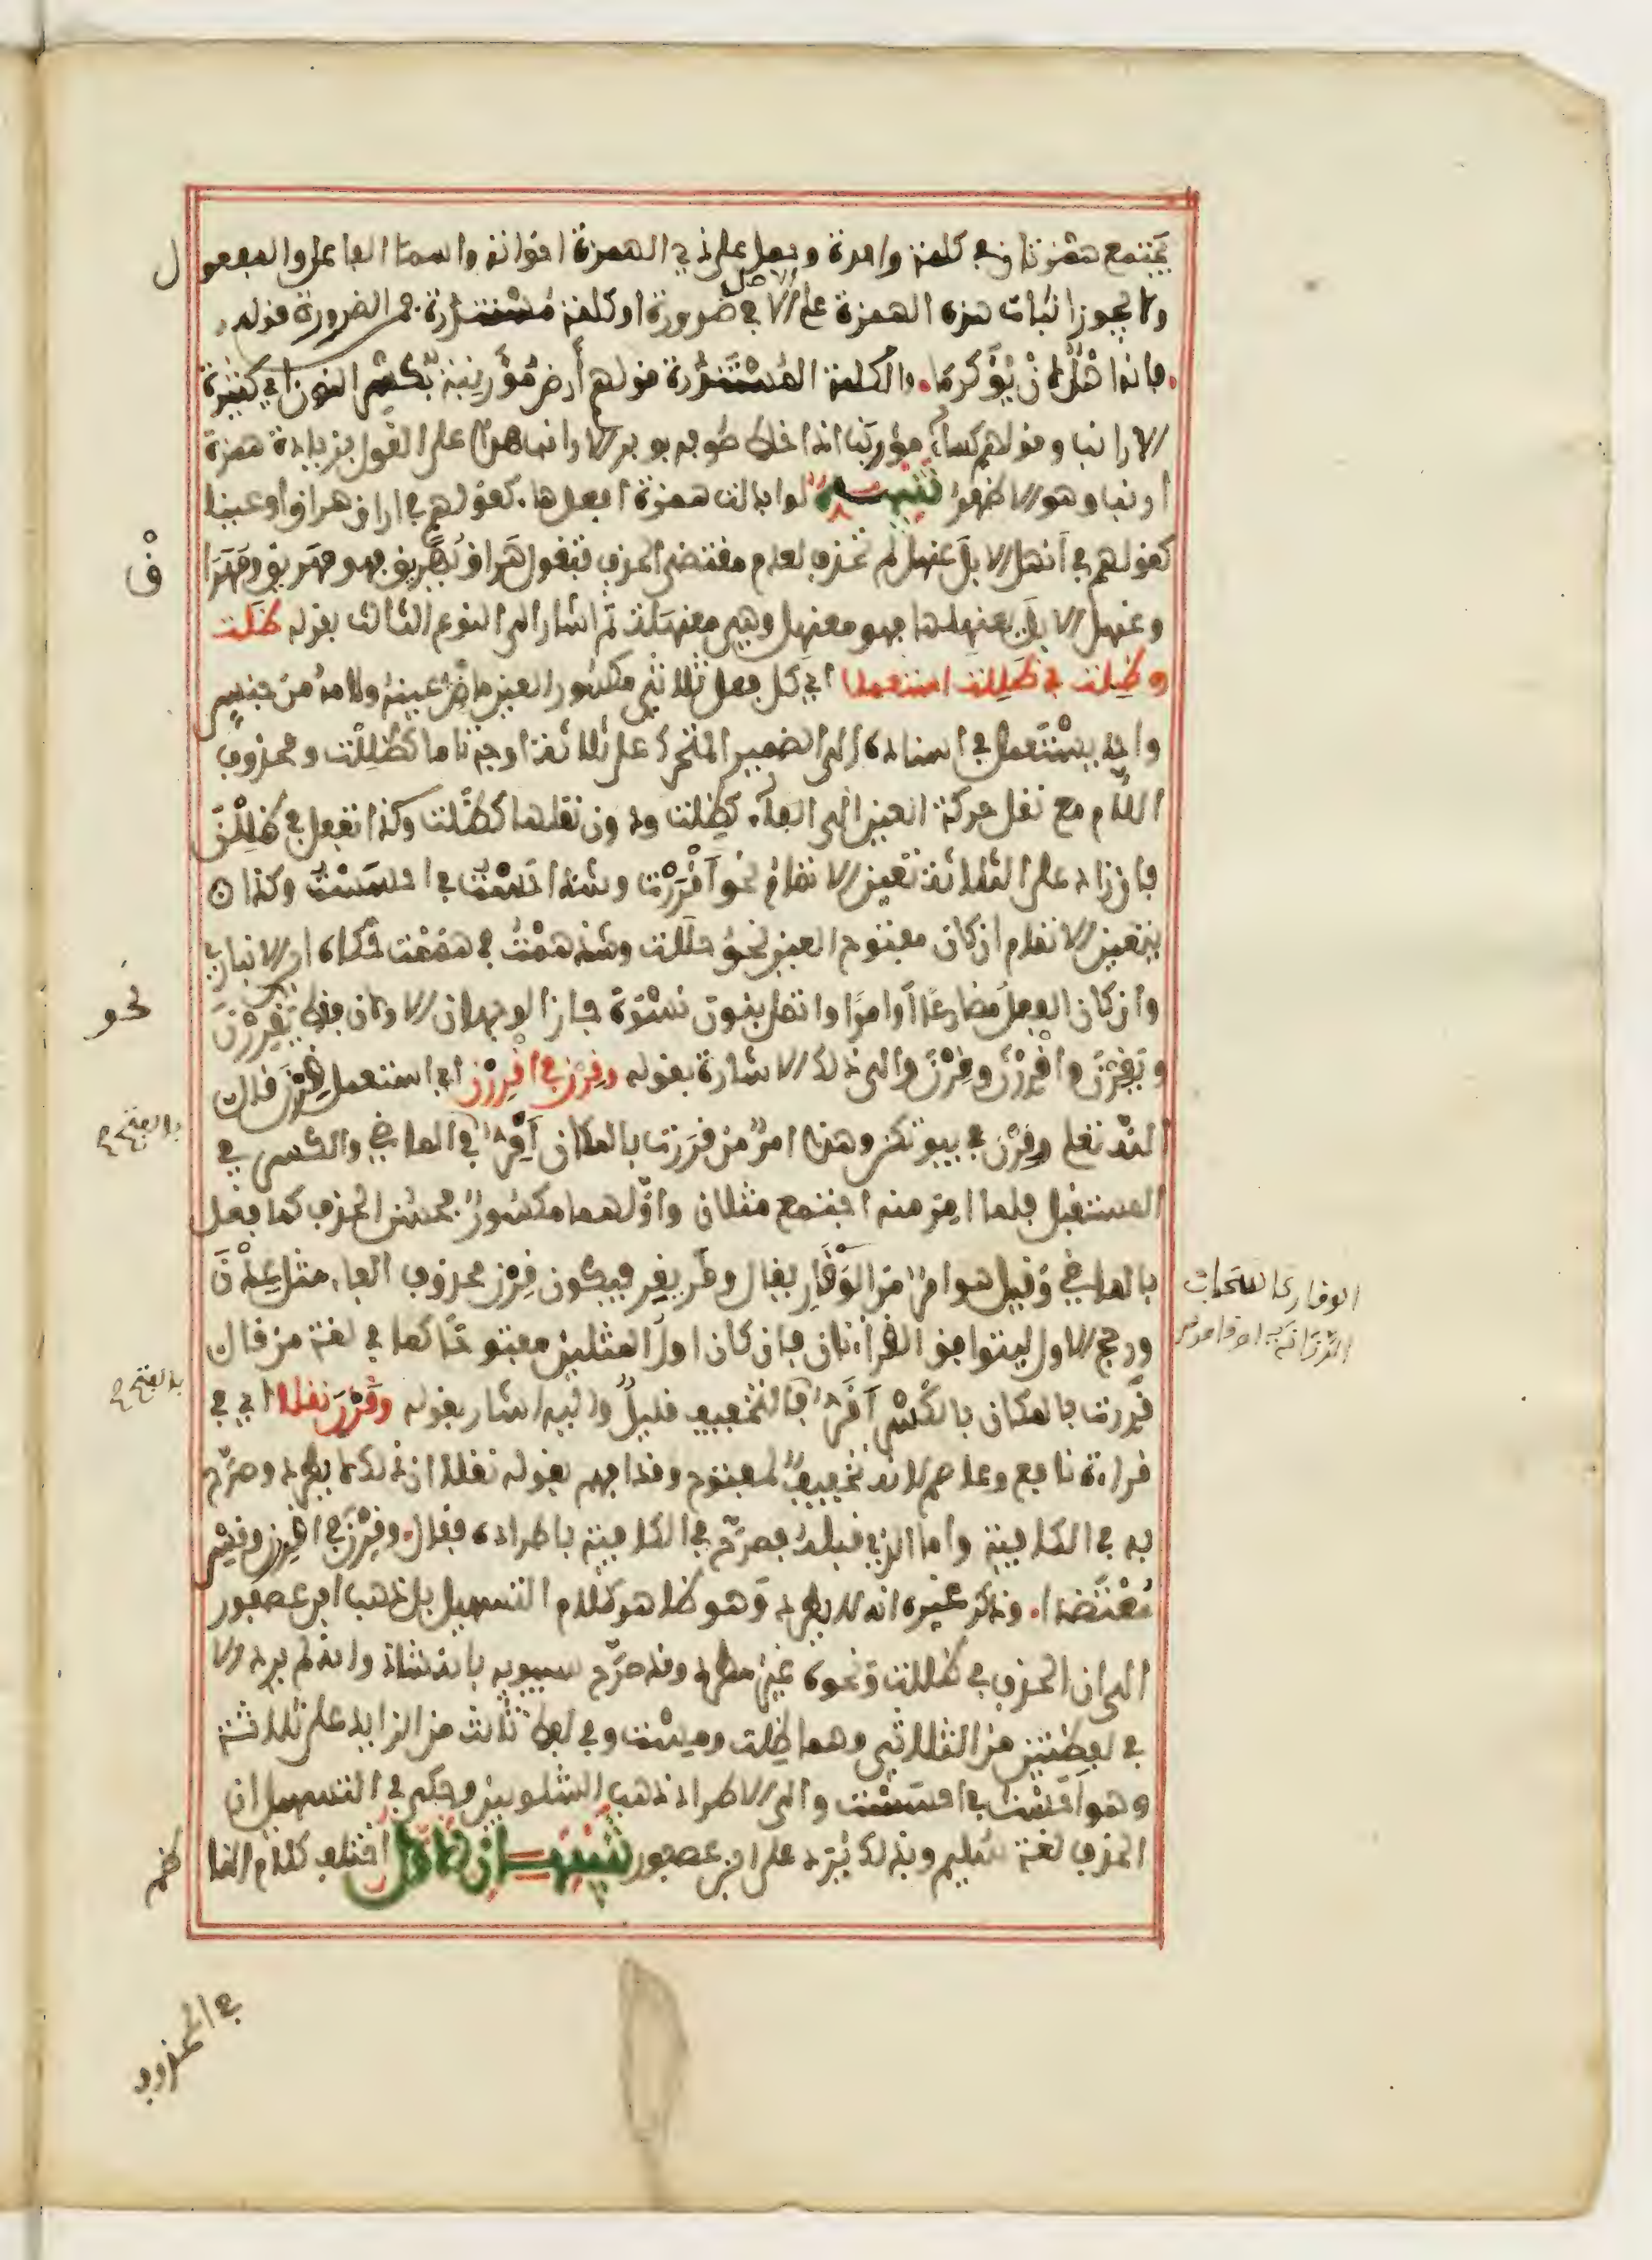 يجتمع همزتان في كلمة واحدة وحمل على ذي الهمزة اخواته واسما الفاعل والمفعول
ولا يجوز اثبات هذه الهمزة على الاصل الا في ضرورة او كلمة مستندرة فمن الضرورة قوله
فانه اهل لان يؤكرما. والكلمة المستندرة قولهم أرض مؤرنبة بكسر النون اي كثيرة
الارانب وقولهم كساء مؤرنب اذا خلط صوفه بوبر الارانب هذا على القول بزيادة همزة
ارنب وهو الاظهر تنبيه لو ابدلت همزة افعل ها. كقولهم في اراق هراق او عينا
كقولهم في أنهل الابل عنهل لم تحذف لعدم مقتضى الحذف فتقول هراق يهريق فهو مهريق ومهراق
وعنهل الابل يعنهلها فهو معنهل وهي معنهلة ثم اشار الى النوع الثالث بقوله ظلت
وظلت في ظللت استعملا اي كل فعل ثلاثي مكسور العين ماض عينه ولامه من جنس
واحد يستعمل في اسناده الى الضمير المتحرك على ثلاثة اوجه تاما كظللت ومحذوف
اللام مع نقل حركة العين الى الفاء كظلت ودون نقلها كظلت وكذا تفعل في ظللن
فان زاد على الثلاثة تعين الاتمام نحو أقررت وشذ احست في احسست وكذا
يتعين الاتمام ان كان مفتوح العين نحو حللت وشذ همت في هممت حكاه ابن الانباري
وان كان الفعل مضارعا أو امرا واتصل بنون نسوة جاز الوجهان الاولان فقط نحو يقررن
ويقرن واقررن وقرن والى ذلك الاشارة بقوله وقرن في اقررن اي استعمل قرن قال
الله تعلى وقرن في بيوتكن وهذا امر من قررت بالمكان أقر بالفتح في الماضي والكسر في
المستقبل فلما امر منه اجتمع مثلان واولهما مكسور فحسن الحذف كما فعل
بالماضي وقيل هو امر من الوقار يقال وقر يقر فيكون قرن محذوف الفاء مثل عدن
ورجح الاول لتوافق القراءتان فان كان اول المثلين مفتوحا كما في لغة من قال
قررت بالمكان بالكسر أقر بالفتح فالتخفيف قليل واليه اشار بقوله وقرن نقلا اي في
قراءة نافع وعاصم لانه تخفيف لمفتوح وقد افهم بقوله نقلا ان ذلك لا يطرد وصرح
به في الكافية واما الذي قبله فصرح في الكافية باطراده فقال وقرن في اقررن وقس
معتضدا. وذكر غيره انه لا يطرد وهو ظاهر كلام التسهيل بل ذهب ابن عصفور
الى ان الحذف في ظللت ونحوه غير مطرد وقد صرح سيبويه بانه شاذ وانه لم يرد الا
في لفظتين من الثلاثي وهما ظلت ومست وفي لفظ ثالث من الزايد على ثلاثة
وهو أحست في احسست والى الاطراد ذهب الشلوبين وحكى في التسهيل ان
الحذف لغة سليم وبذلك يرد على ابن عصفور تنبيهان الاول اختلف كلام الناظم
في المحذوف